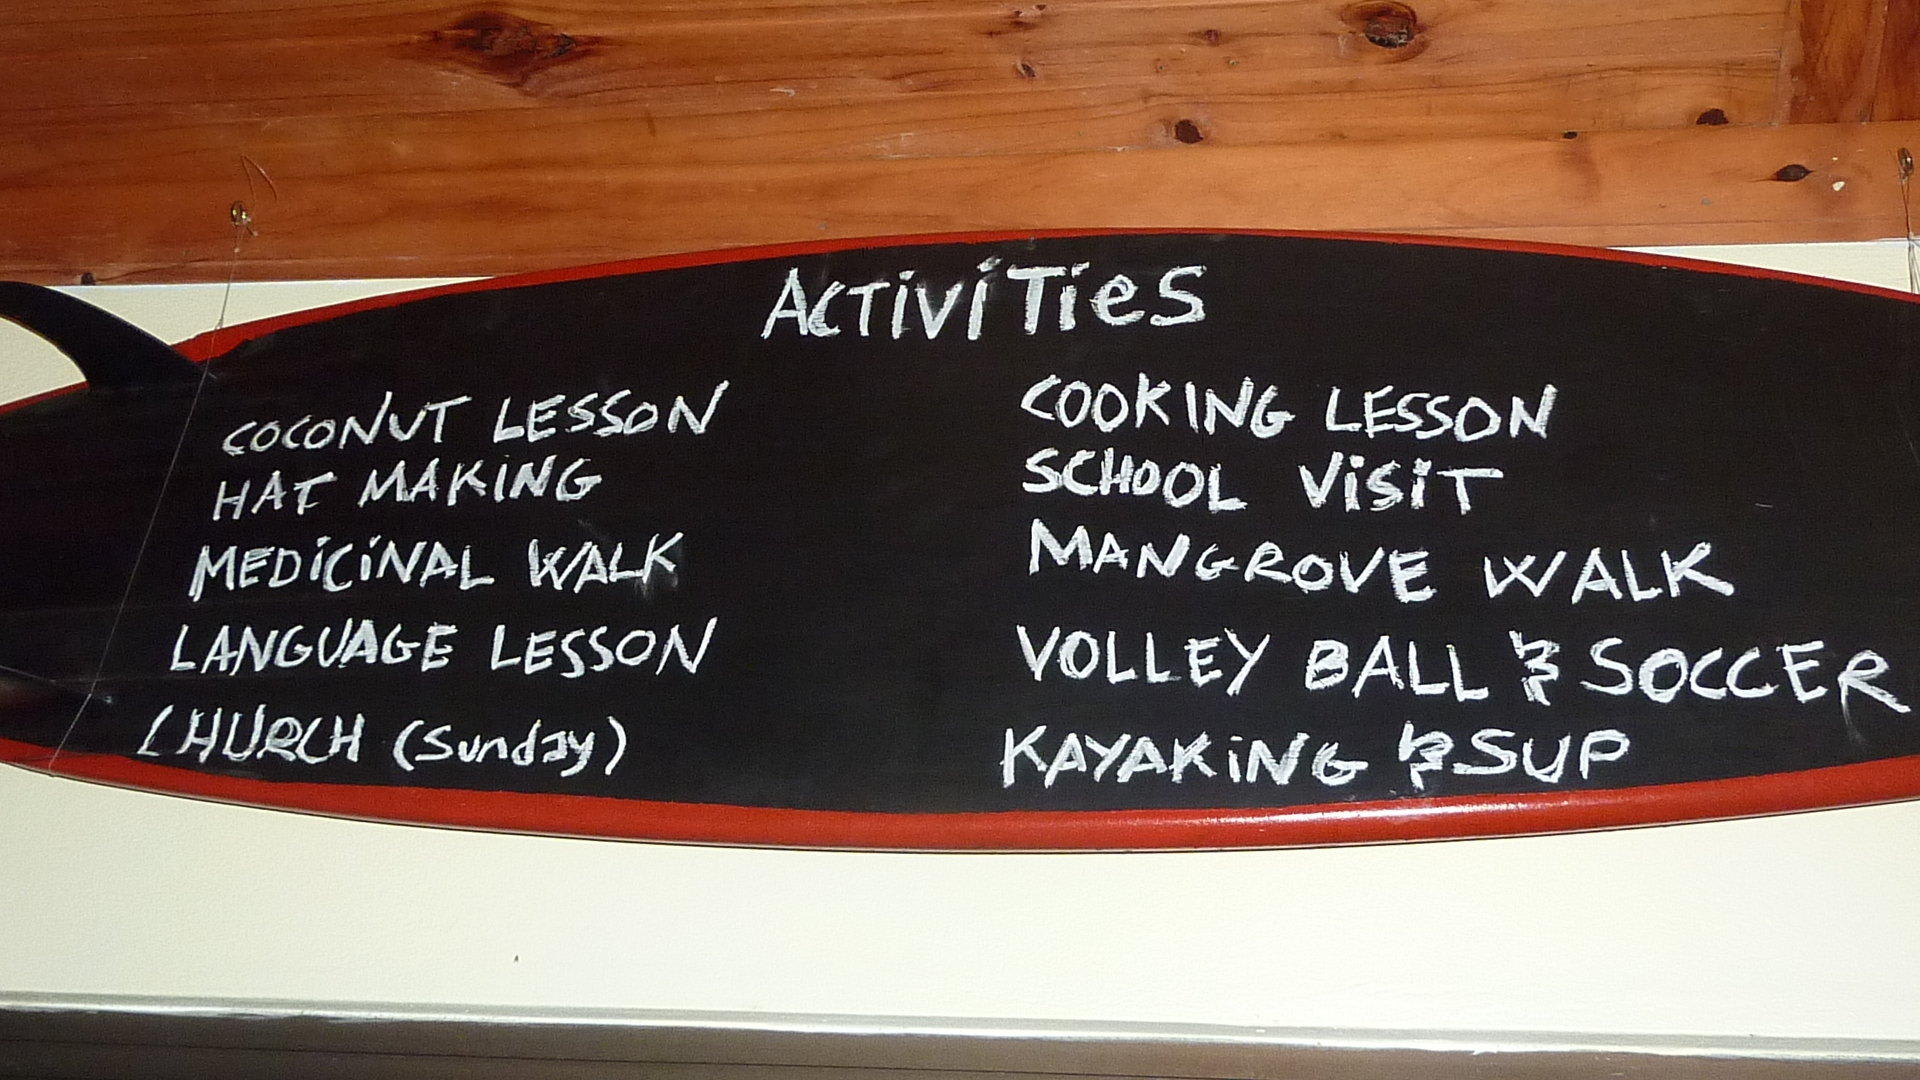 ACTiViTieS
COCONUT LESSON
HAT MAKING
MEDiCiNAL WALK
LANGUAGE LESSON
CHURCH (Sunday)
COOKING LESSON
SCHOOL ViSiT
MANGROVE WALK
VOLLEY BALL & SOCCER
KAYAKiNG & SUP